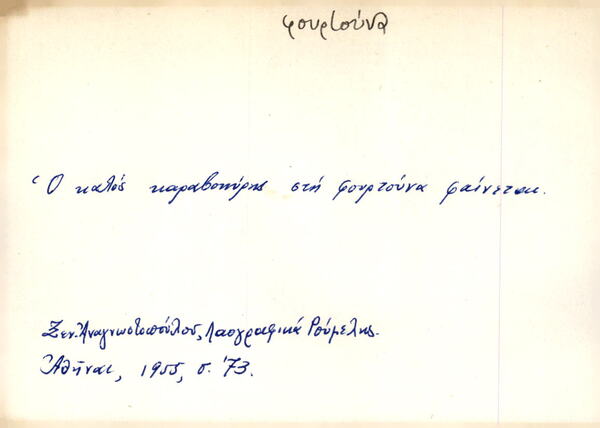 φουρτούνα
Ὁ καλός καραβοκύρης στή φουρτούνα φαίνεται.
Ξεν. Ἀναγνωστοπούλου, Λαογραφικά Ρούμελης.
Ἀθῆναι, 1955, σ. 73.